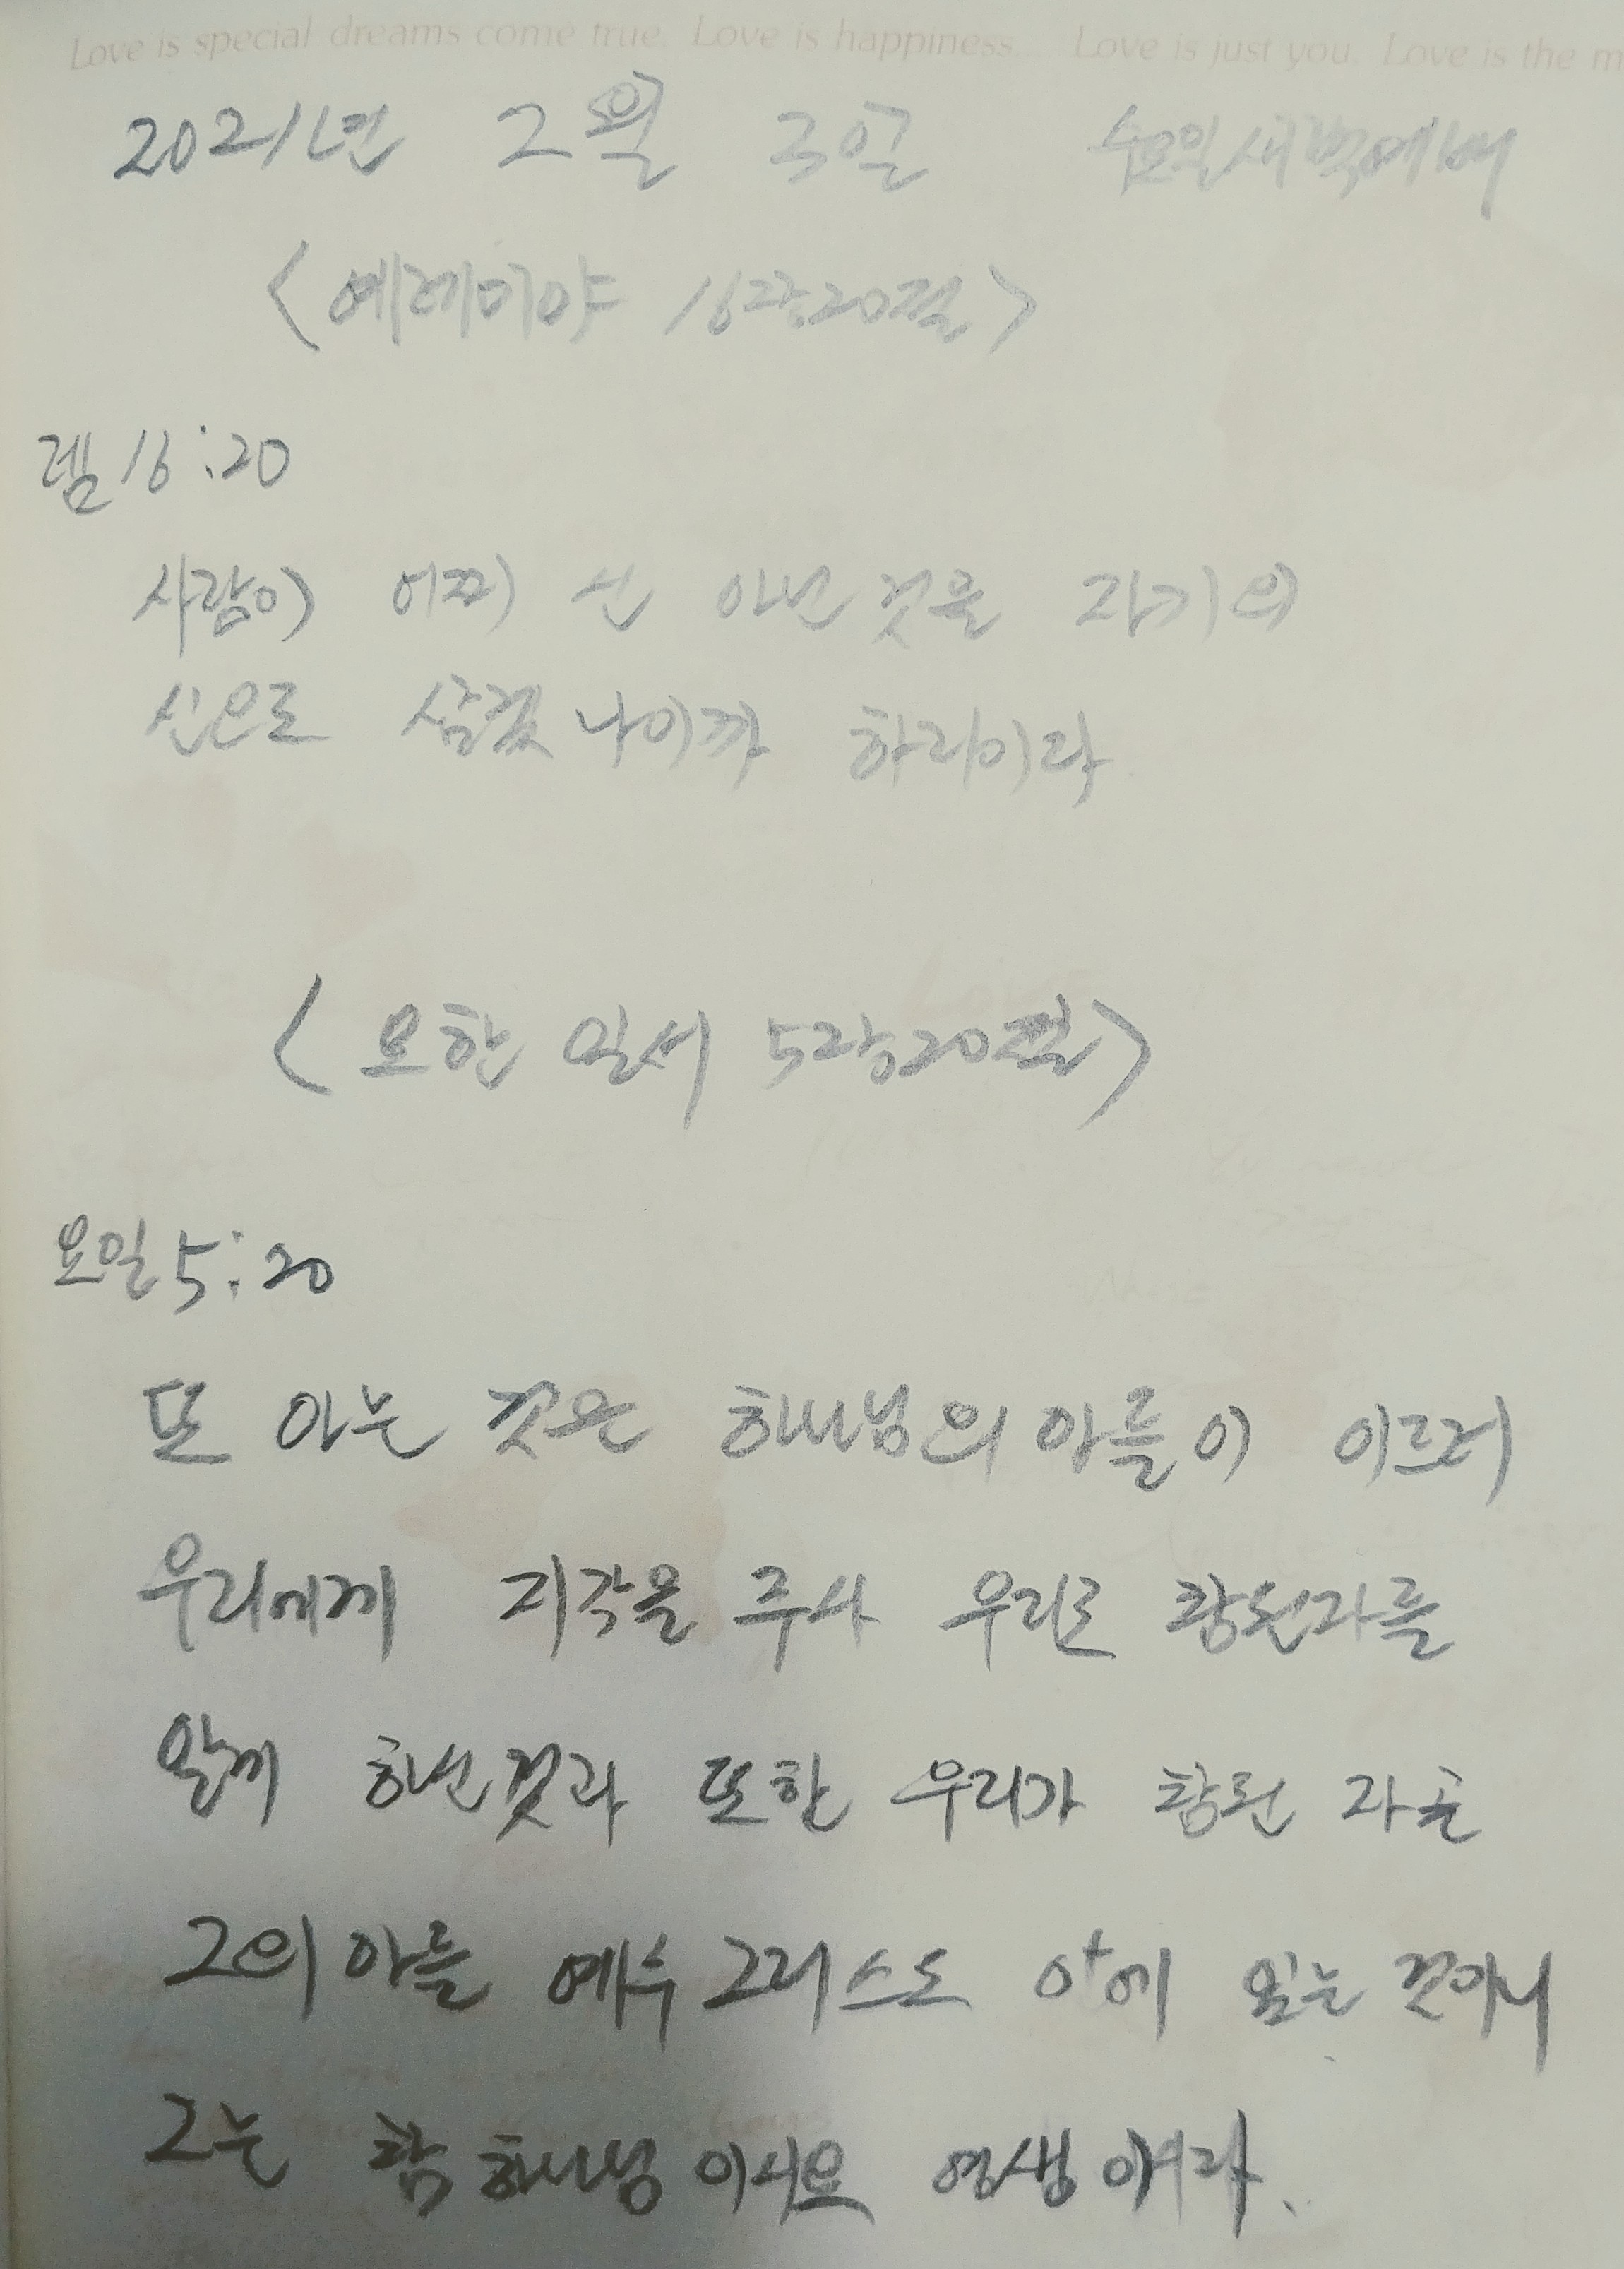 Love is special dreams come true. Love is happiness... Love is just you. Love is the m
2021년 2월 3일 수요일새벽예배
<예레미야 16장20절>
렘16:20
사람이 어찌 신 아닌것을 자기의
신으로 삼겠나이까 하리이다
<요한 일서 5장20절>
요일5:20
또 아는 것은 하나님의 아들이 이르러
우리에게 지각을 주사 우리로 참된자를
알게 하신것과 또한 우리가 참된 자 곧
그의 아들 예수 그리스도 안에 있는 것이니
그는 참 하나님이시요 영생이시라.